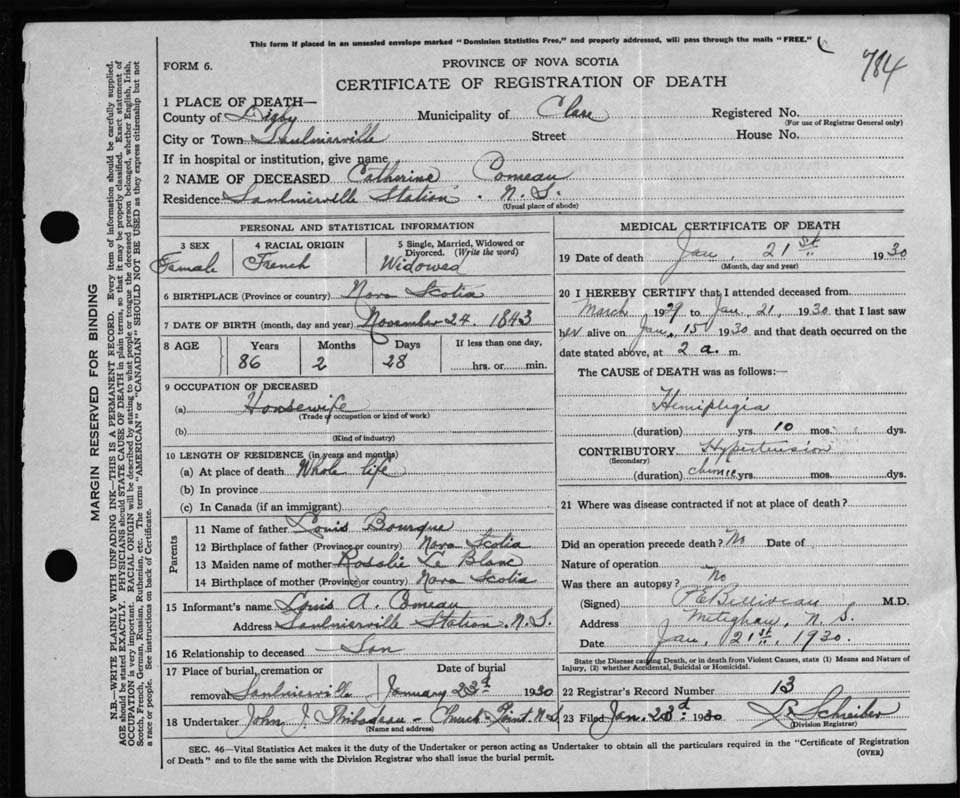 This form if placed in an unsealed envelope marked "Dominion Statistics Free," and properly addressed, will pass through the mails "FREE."
784
FORM 6.
PROVINCE OF NOVA SCOTIA
CERTIFICATE OF REGISTRATION OF DEATH
MARGIN RESERVED FOR BINDING
N.B.—WRITE PLAINLY WITH UNFADING INK—THIS IS A PERMANENT RECORD. Every item of information should be carefully supplied.
AGE should be stated EXACTLY. PHYSICIANS should STATE CAUSE OF DEATH in plain terms, so that it may be properly classified. Exact statement of
OCCUPATION is very important. RACIAL ORIGIN will be described by stating to what people or tongue the deceased person belonged, whether English, Irish,
Scotch, French, German, Russian, Ruthenian, etc. The terms "AMERICAN" or "CANADIAN" SHOULD NOT BE USED as they express citizenship but not
a race or people. See instructions on back of Certificate.
1 PLACE OF DEATH—
County of Digby Municipality of Clare Registered No.
(For use of Registrar General only)
City or Town Saulnierville Street House No.
If in hospital or institution, give name
2 NAME OF DECEASED Catherine Comeau
Residence Saulnierville Station. N.S.
(Usual place of abode)
PERSONAL AND STATISTICAL INFORMATION
3 SEX 4 RACIAL ORIGIN 5 Single, Married, Widowed or
Divorced. (Write the word)
Female French Widowed
6 BIRTHPLACE (Province or country) Nova Scotia
7 DATE OF BIRTH (month, day and year) November 24. 1843
8 AGE Years Months Days If less than one day,
86 2 28 hrs. or min.
9 OCCUPATION OF DECEASED
(a) Housewife
(Trade or occupation or kind of work)
(b)
(Kind of industry)
10 LENGTH OF RESIDENCE (in years and months)
(a) At place of death Whole life
(b) In province
(c) In Canada (if an immigrant)
Parents
11 Name of father Louis Bourque
12 Birthplace of father (Province or country) Nova Scotia
13 Maiden name of mother Rosalie Le Blanc
14 Birthplace of mother (Province or country) Nova Scotia
15 Informant's name Louis A. Comeau
Address Saulnierville Station. N.S.
16 Relationship to deceased Son
17 Place of burial, cremation or Date of burial
removal Saulnierville January 23d 1930
18 Undertaker John J. Thibodeau - Church Point. N.S.
(Name and address)
MEDICAL CERTIFICATE OF DEATH
19 Date of death Jan. 21st 1930
(Month, day and year)
20 I HEREBY CERTIFY that I attended deceased from
March 1929 to Jan. 21, 1930 that I last saw
her alive on Jan. 15 1930 and that death occurred on the
date stated above, at 2 a. m.
The CAUSE of DEATH was as follows:—
Hemiplegia
(duration) yrs. 10 mos. dys.
CONTRIBUTORY Hypertension
(Secondary)
(duration) yrs. mos. dys.
21 Where was disease contracted if not at place of death?
Did an operation precede death? No Date of
Nature of operation
Was there an autopsy? No
(Signed) P.E. Belliveau M.D.
Address Meteghan, N.S.
Date Jan. 21st, 1930.
State the Disease causing Death, or in death from Violent Causes, state (1) Means and Nature of
Injury, (2) whether Accidental, Suicidal or Homicidal.
22 Registrar's Record Number 13
23 Filed Jan. 23d 1930 Schreiber
(Division Registrar)
SEC. 46—Vital Statistics Act makes it the duty of the Undertaker or person acting as Undertaker to obtain all the particulars required in the "Certificate of Registration
of Death" and to file the same with the Division Registrar who shall issue the burial permit.
(OVER)